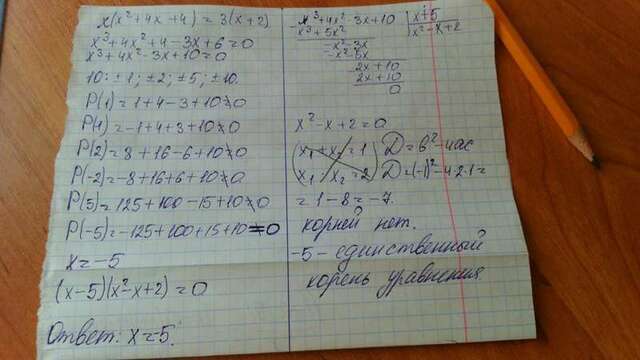 x(x²+4x+4)=3(x+2)
x³+4x²+4-3x+6=0
x³+4x²-3x+10=0
10: ±1; ±2; ±5; ±10.
P(1)=1+4-3+10≠0
P(1)=-1+4+3+10≠0
P(2)=8+16-6+10≠0
P(-2)=-8+16+6+10≠0
P(5)=125+100-15+10≠0
P(-5)=-125+100+15+10=0
x=-5
(x-5)(x²-x+2)=0
Ответ: x=5.
x³+4x²-3x+10 | x+5
x³+5x² x²-x+2
-x²-3x
-x²-5x
2x+10
2x+10
0
x²-x+2=0
x₁+x₂=1 D=b²-4ac
x₁ x₂=2 D=(-1)²-4·2·1=
=1-8=-7.
корней нет.
-5-единственный
корень уравнения.